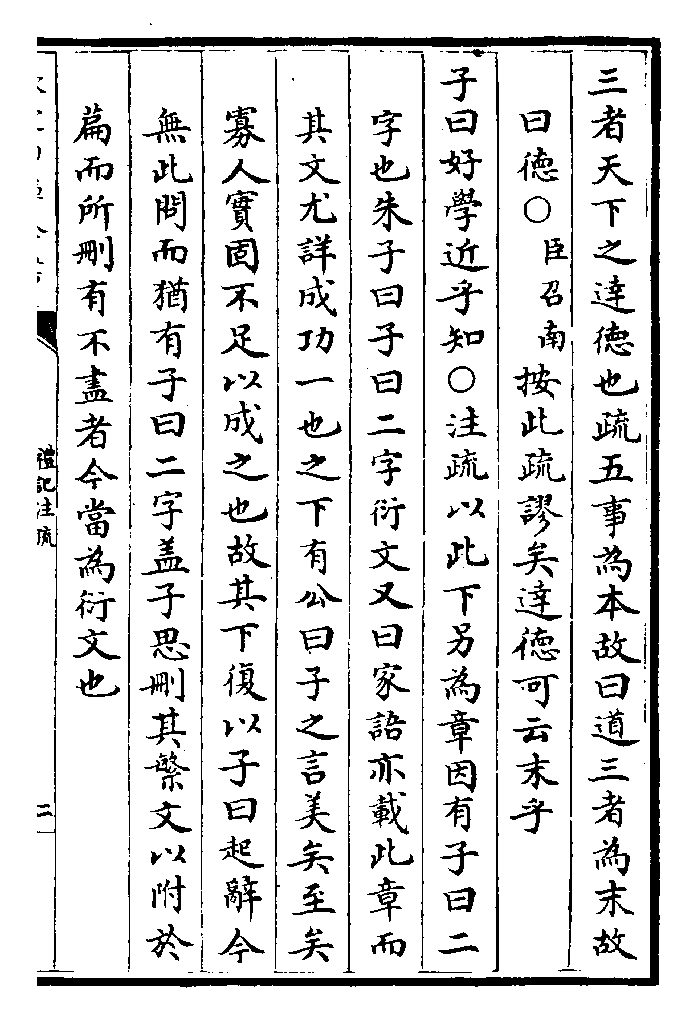 三者天下之達德也疏五事為本故曰道三者為末故
曰德○臣召南按此疏謬矣達德可云末乎
子曰好學近乎知○注疏以此下另為章因有子曰二
字也朱子曰子曰二字衍文又曰家語亦載此章而
其文尤詳成功一也之下有公曰子之言美矣至矣
寡人實固不足以成之也故其下復以子曰起辭今
無此問而猶有子曰二字盖子思刪其繁文以附於
篇而所刪有不盡者今當為衍文也
禮記注疏
二